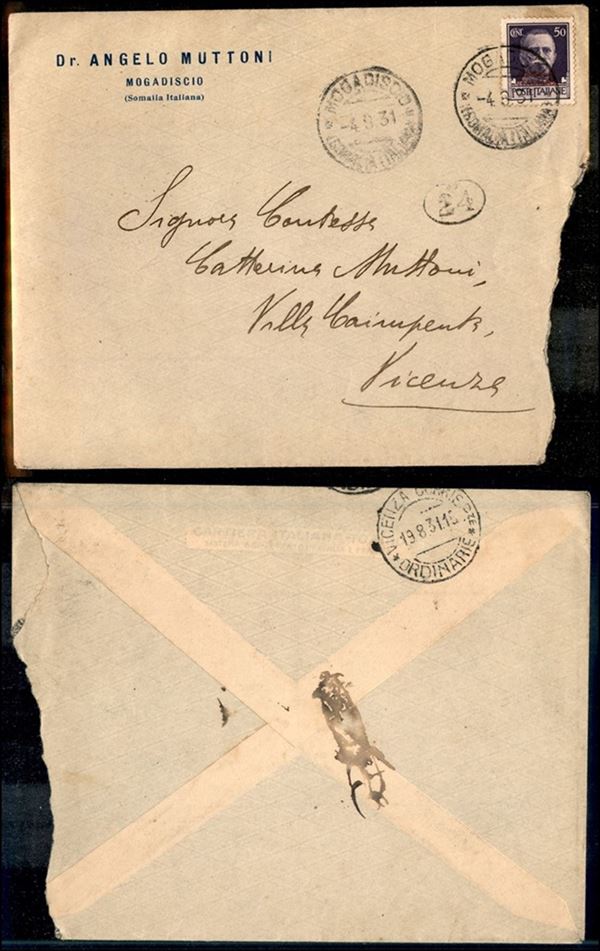 Dr. ANGELO MUTTONI
MOGADISCIO
(Somalia Italiana)
MOGADISCIO
-4.8.31
(SOMALIA ITALIANA)
MOGADISCIO
-4.8.31
(SOMALIA ITALIANA)
CENT. 50
POSTE ITALIANE
24
Signora Contessa
Catterina Muttoni,
Villa Caimpenta,
Vicenza
VICENZA CORR E PZE
19.8.31.15
ORDINARIE